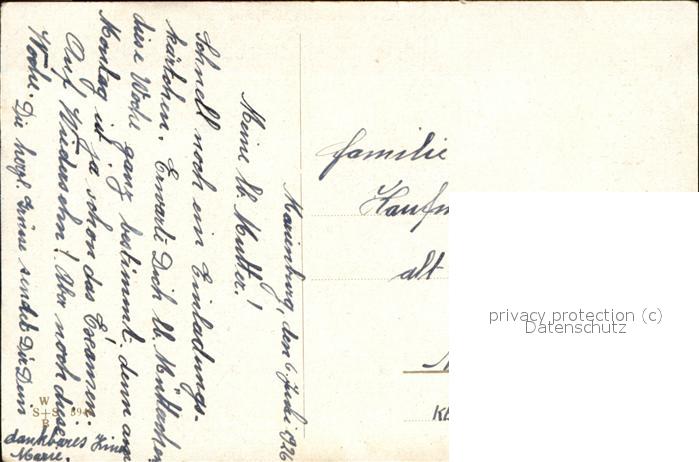 Marienburg, den 6. Juli 1926
Meine lb. Mutter!
Schnell noch ein Einladungs-
kärtchen. Erwarte Dich lb. Mütterchen
diese Woche ganz bestimmt, denn am
Montag ist ja schon das Examen.
Auf Wiedersehn! Aber noch diese
Woche. Die herzl. Grüsse sendet Dir Dein
dankbares Kind
Marie.
familie
alt
W
S+S
B
privacy protection (c)
Datenschutz